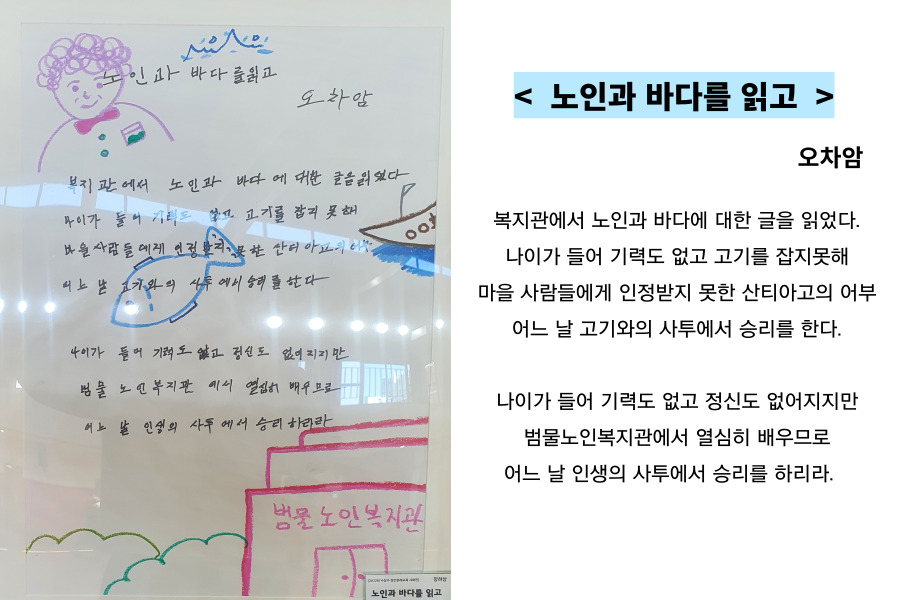 노인과 바다를 읽고
오차암
복지관에서 노인과 바다에 대한 글을 읽었다
나이가 들어 기력도 없고 고기를 잡지 못해
마을 사람들에게 인정받지 못한 산티아고의 어부
어느 날 고기와의 사투에서 승리를 한다
나이가 들어 기력도 없고 정신도 없어지지만
범물 노인복지관에서 열심히 배우므로
어느 날 인생의 사투에서 승리하리라
범물노인복지관
장려상
노인과 바다를 읽고
< 노인과 바다를 읽고 >
오차암
복지관에서 노인과 바다에 대한 글을 읽었다.
나이가 들어 기력도 없고 고기를 잡지못해
마을 사람들에게 인정받지 못한 산티아고의 어부
어느 날 고기와의 사투에서 승리를 한다.
나이가 들어 기력도 없고 정신도 없어지지만
범물노인복지관에서 열심히 배우므로
어느 날 인생의 사투에서 승리를 하리라.